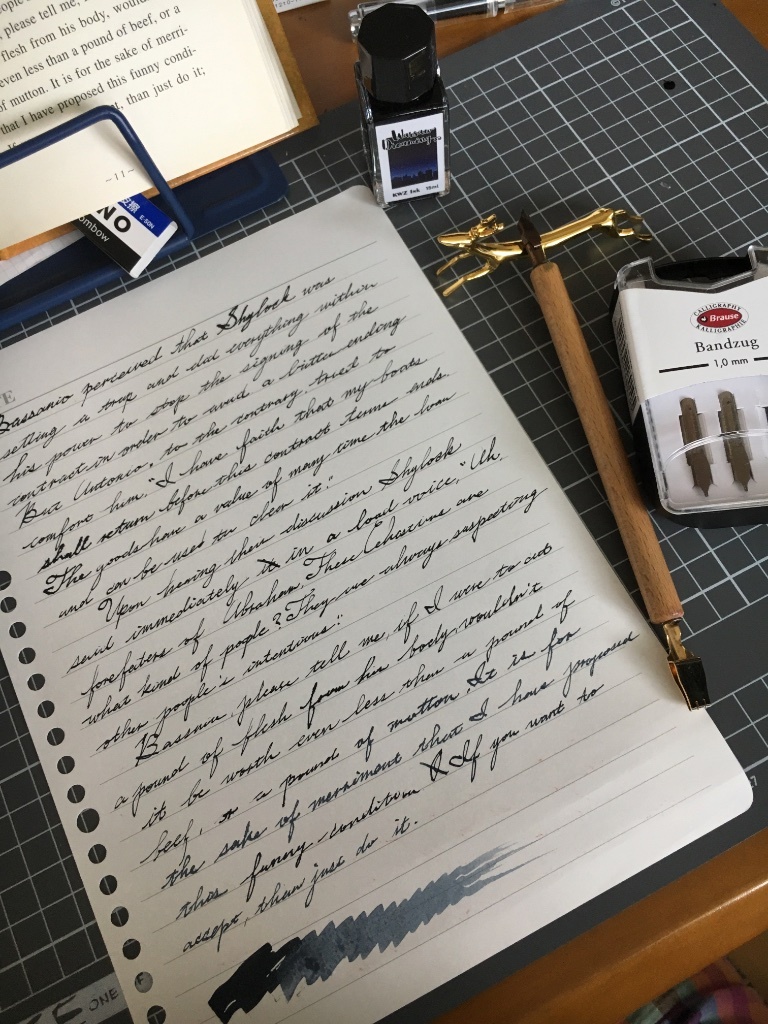 ople
, please tell me,
flesh from his body, would
even less than a pound of beef, or a
of mutton. It is for the sake of merri-
that I have proposed this funny condi-
t, than just do it;
~11~
E-50N
NO
ombow
Warsaw
Dreaming
KWZ Ink
CALLIGRAPHY
Brause
KALLIGRAPHIE
Bandzug
1,0 mm
Bassanio perceived that Shylock was
setting a trap and did everything within
his power to stop the signing of the
contract in order to avoid a bitter ending
But Antonio, to the contrary, tried to
comfort him. "I have faith that my boats
shall return before this contract terms ends.
The goods have a value of many time the loan
and can be used to clear it."
Upon hearing their discussion Shylock
said immediately in a loud voice, "Uh,
forefaters of Abraham. These Christine are
what kind of people? They are always suspecting
other people's intentious."
Bassanio, please tell me, if I were to cut
a pound of flesh from his body, wouldn't
it be worth even less than a pound of
beef, or a pound of mutton. It is for
the sake of merriment that I have proposed
this funny condition If you want to
accept, than just do it.
ONE